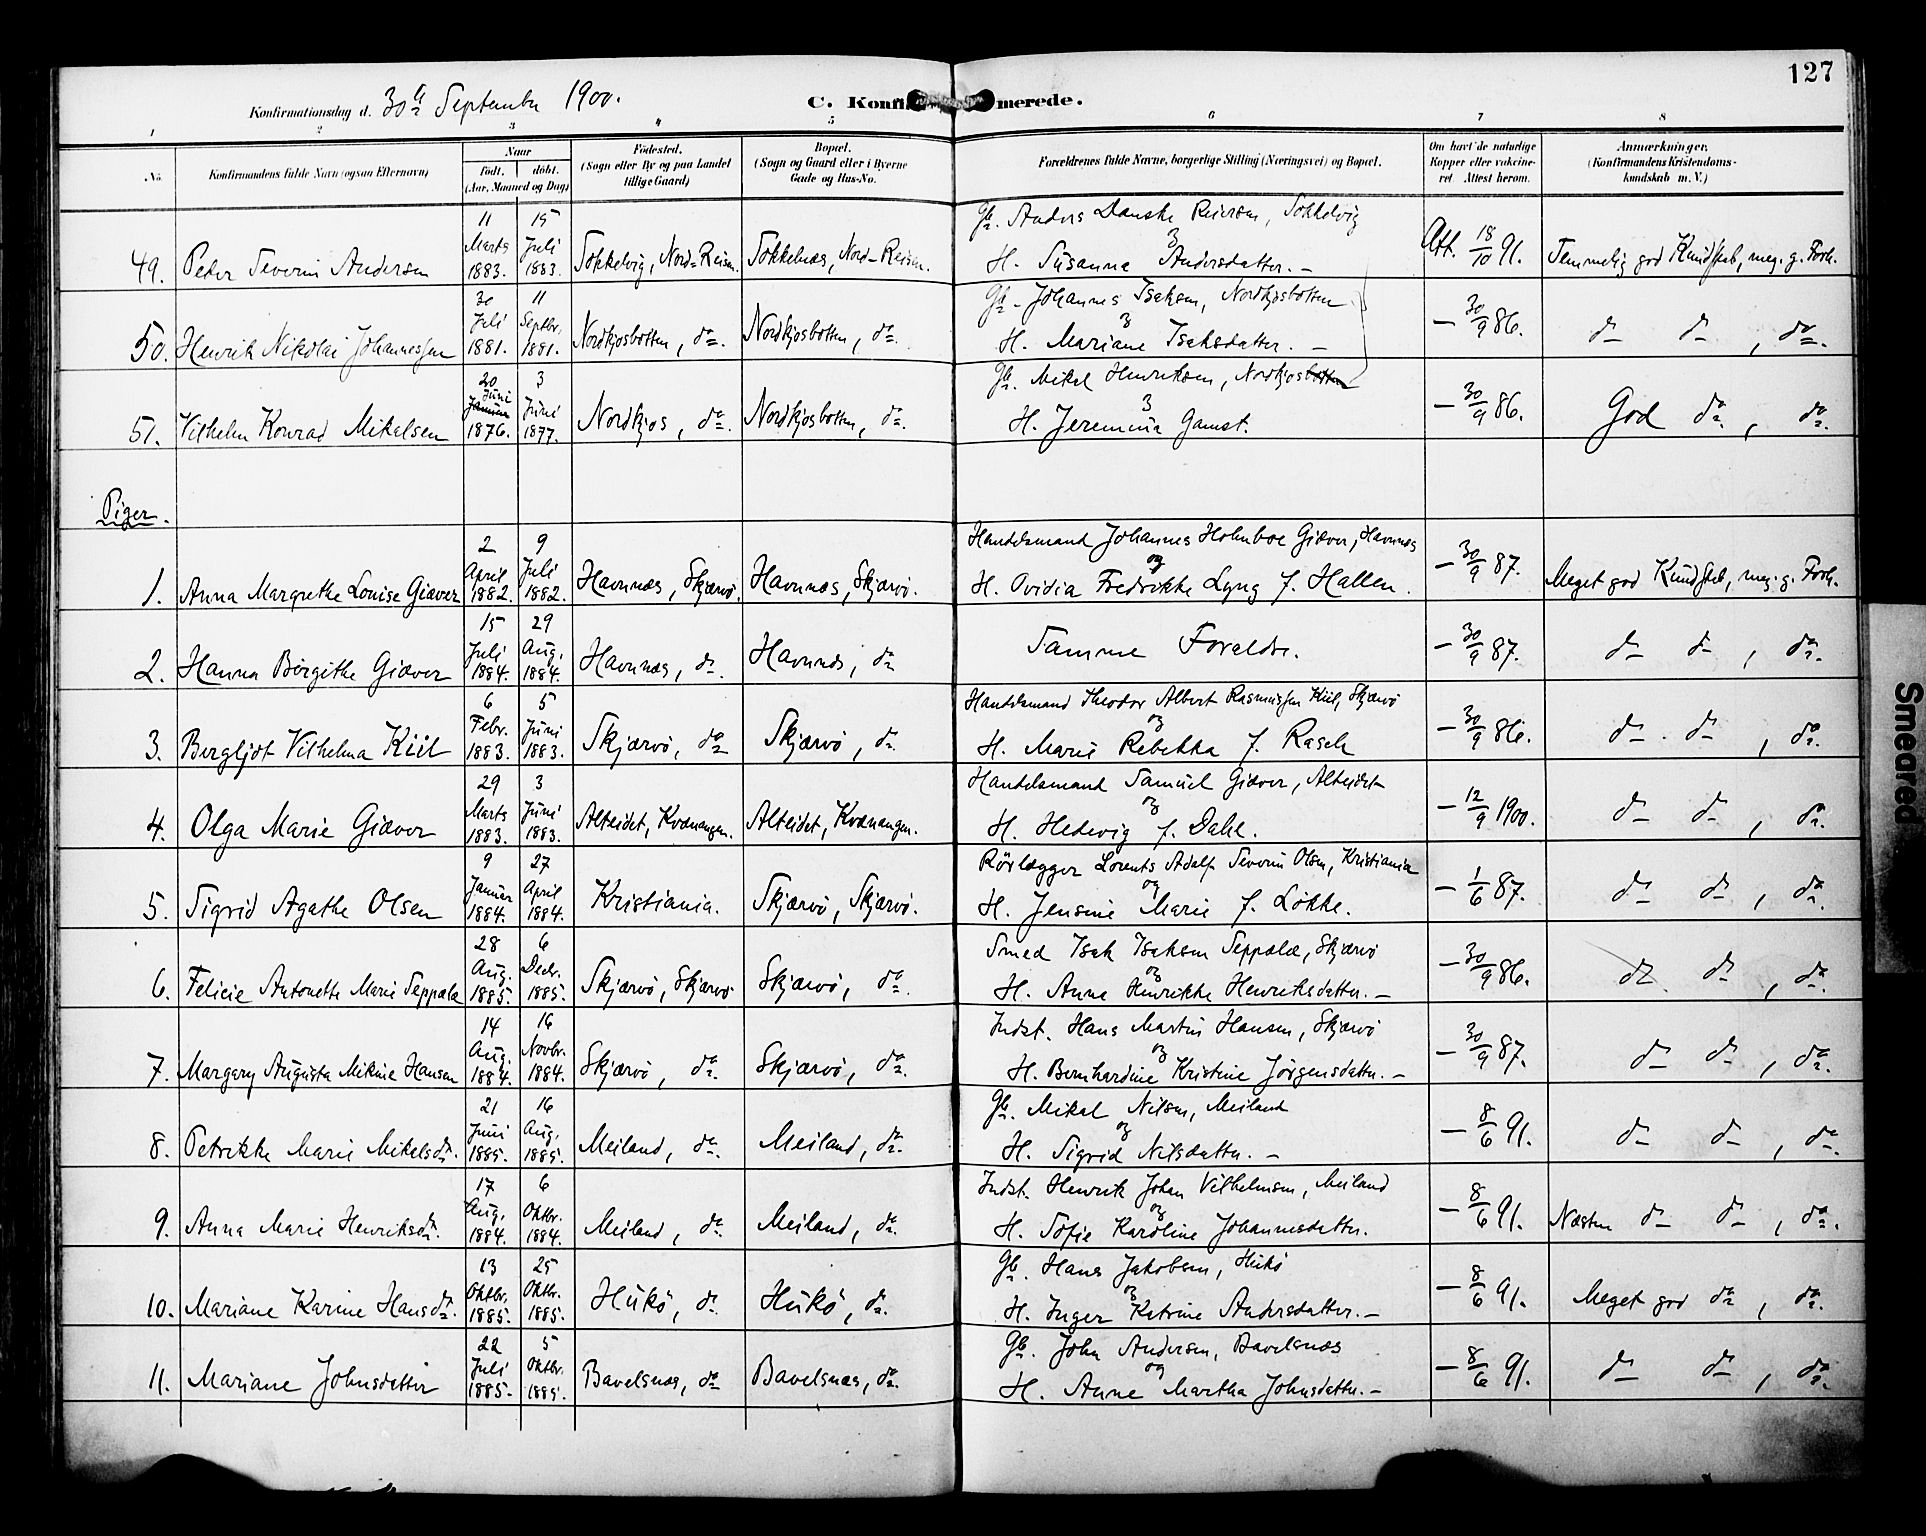 127
Konfirmationsdag d. 30te September 1900.
C. Konfirmerede.
1 2 3 4 5 6 7 8
No. Konfirmandens fulde Navn (ogsaa Efternavn) Naar födt. döbt. (Aar, Maaned og Dag) Födested. (Sogn eller By og paa Landet tillige Gaard) Bopæl. (Sogn og Gaard eller i Byerne Gade og Hus-No. Forældrenes fulde Navne, borgerlige Stilling (Næringsvei) og Bopæl. Om havt de naturlige Kopper eller vakcineret. Attest herom. Anmærkninger. (Konfirmandens Kristendomskundskab m. V.)
49. Peder Severin Andersen 11 Marts 1883. 15 Juli 1883. Sokkelvig, Nord-Reisen. Sokkelnæs, Nord-Reisen. Gb. Anders Danske Reiersen, Sokkelvig & H. Susanna Andersdatter. – Att. 18/10 91. Temmelig god Kundskab, meg. g. Forh.
50. Henrik Nikolai Johannessen 30 Juli 1881. 11 Septbr. 1881. Nordkjosbotten, do. Nordkjosbotten, do. Gb. Johannes Isaksen, Nordkjosbotten & H. Mariane Isaksdatter. – – 30/9 86. do do, do.
51. Vilhelm Konrad Mikalsen 20 Juni Januar 1876. 3 Juni 1877. Nordkjos, do. Nordkjosbotten, do. Gb. Mikal Henriksen, Nordkjosbotten & H. Jeremina Gamst. – 30/9 86. God do, do.
Piger.
1. Anna Margrethe Louise Giæver 2 April 1882. 9 Juli 1882. Havnnæs, Skjærvö. Havnnæs, Skjærvö. Handelsmand Johannes Holmboe Giæver, Havnnæs og H. Ovidia Fredrikke Lyng f. Hallen. – 30/9 87. Meget god Kundskab, meg. g. Forh.
2. Hanna Birgithe Giæver 15 Juli 1884. 29 Aug. 1884. Havnnæs, do. Havnnæs, do Samme Forældre. – 30/9 87. do do, do.
3. Bergljot Vilhelma Kiil 6 Febr. 1883. 5 Juni 1883. Skjærvö, do Skjærvö, do. Handelsmand Theodor Albert Rasmussen Kiil, Skjærvö og H. Marie Rebekka f. Rasch – 30/9 86. do. do, do.
4. Olga Marie Giæver 29 Marts 1883. 3 Juni 1883. Alteidet, Kvænangen. Alteidet, Kvænangen. Handelsmand Samuel Giæver, Alteidet og H. Hedevig f. Dahl. – 12/9 1900. do do, do.
5. Sigrid Agathe Olsen 9 Januar 1884. 27 April 1884. Kristiania. Skjærvö, Skjærvö. Rörlægger Lorents Adolf Severin Olsen, Kristiania og H. Jensine Marie f. Lökke. – 1/6 87. do do, do.
6. Felicie Antonette Marie Seppälä 28 Aug. 1885. 6 Decbr. 1885. Skjærvö, Skjærvö Skjærvö, do. Smed Isak Isaksen Seppälä, Skjærvö og H. Anne Henrikke Henriksdatter. – – 30/9 86. do. do, do.
7. Margary Augusta Mikine Hansen 14 Aug. 1884. 16 Novbr. 1884. Skjærvö, do. Skjærvö, do. Indst. Hans Martin Hansen, Skjærvö og H. Bernhardine Kristine Jörgensdatter. – – 30/9 87. do do, do.
8. Petrikke Marie Mikelsdtr. 21 Juni 1885. 16 Aug. 1885. Meiland, do. Meiland, do. Gb. Mikal Nilsen, Meiland og H. Sigrid Nilsdatter. – – 8/6 91. do do, do.
9. Anna Marie Henriksdtr. 17 Aug. 1884. 6 Oktbr. 1884. Meiland, do. Meiland, do. Indst. Henrik Johan Vilhelmsen, Meiland og H. Sofie Karoline Johannesdatter. – 8/6 91. Næsten do do, do.
10. Mariane Karine Hansdtr. 13 Oktbr. 1885. 25 Oktbr. 1885. Hukö, do. Hukö, do. Gb. Hans Jakobsen, Hukö og H. Inger Katrine Andersdatter. – – 8/6 91. Meget god do, do.
11. Mariane Johnsdatter 22 Juli 1885. 5 Oktbr. 1885. Bavelsnæs, do Bavelsnæs, do. Gb. John Andersen, Bavelsnæs og H. Anne Martha Johnsdatter. – – 8/6 91. do do, do.
Smeared